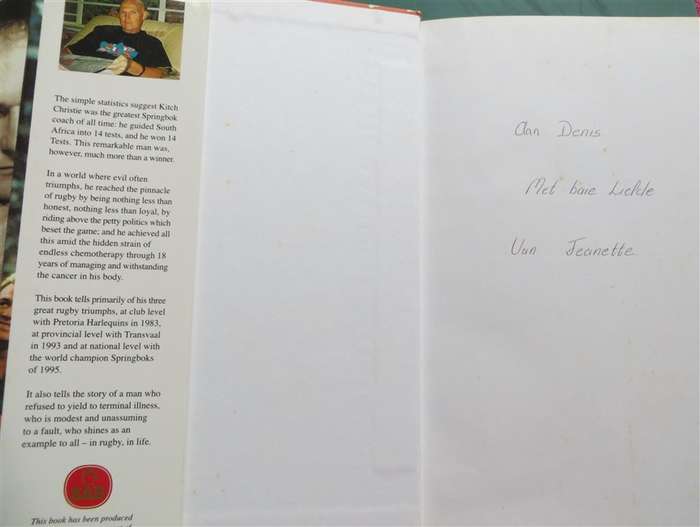 The simple statistics suggest Kitch
Christie was the greatest Springbok
coach of all time: he guided South
Africa into 14 tests, and he won 14
Tests. This remarkable man was,
however, much more than a winner.
In a world where evil often
triumphs, he reached the pinnacle
of rugby by being nothing less than
honest, nothing less than loyal, by
riding above the petty politics which
beset the game; and he achieved all
this amid the hidden strain of
endless chemotherapy through 18
years of managing and withstanding
the cancer in his body.
This book tells primarily of his three
great rugby triumphs, at club level
with Pretoria Harlequins in 1983,
at provincial level with Transvaal
in 1993 and at national level with
the world champion Springboks
of 1995.
It also tells the story of a man who
refused to yield to terminal illness,
who is modest and unassuming
to a fault, who shines as an
example to all – in rugby, in life.
This book has been produced
Aan Denis
Met baie Liefde
Van Jeanette